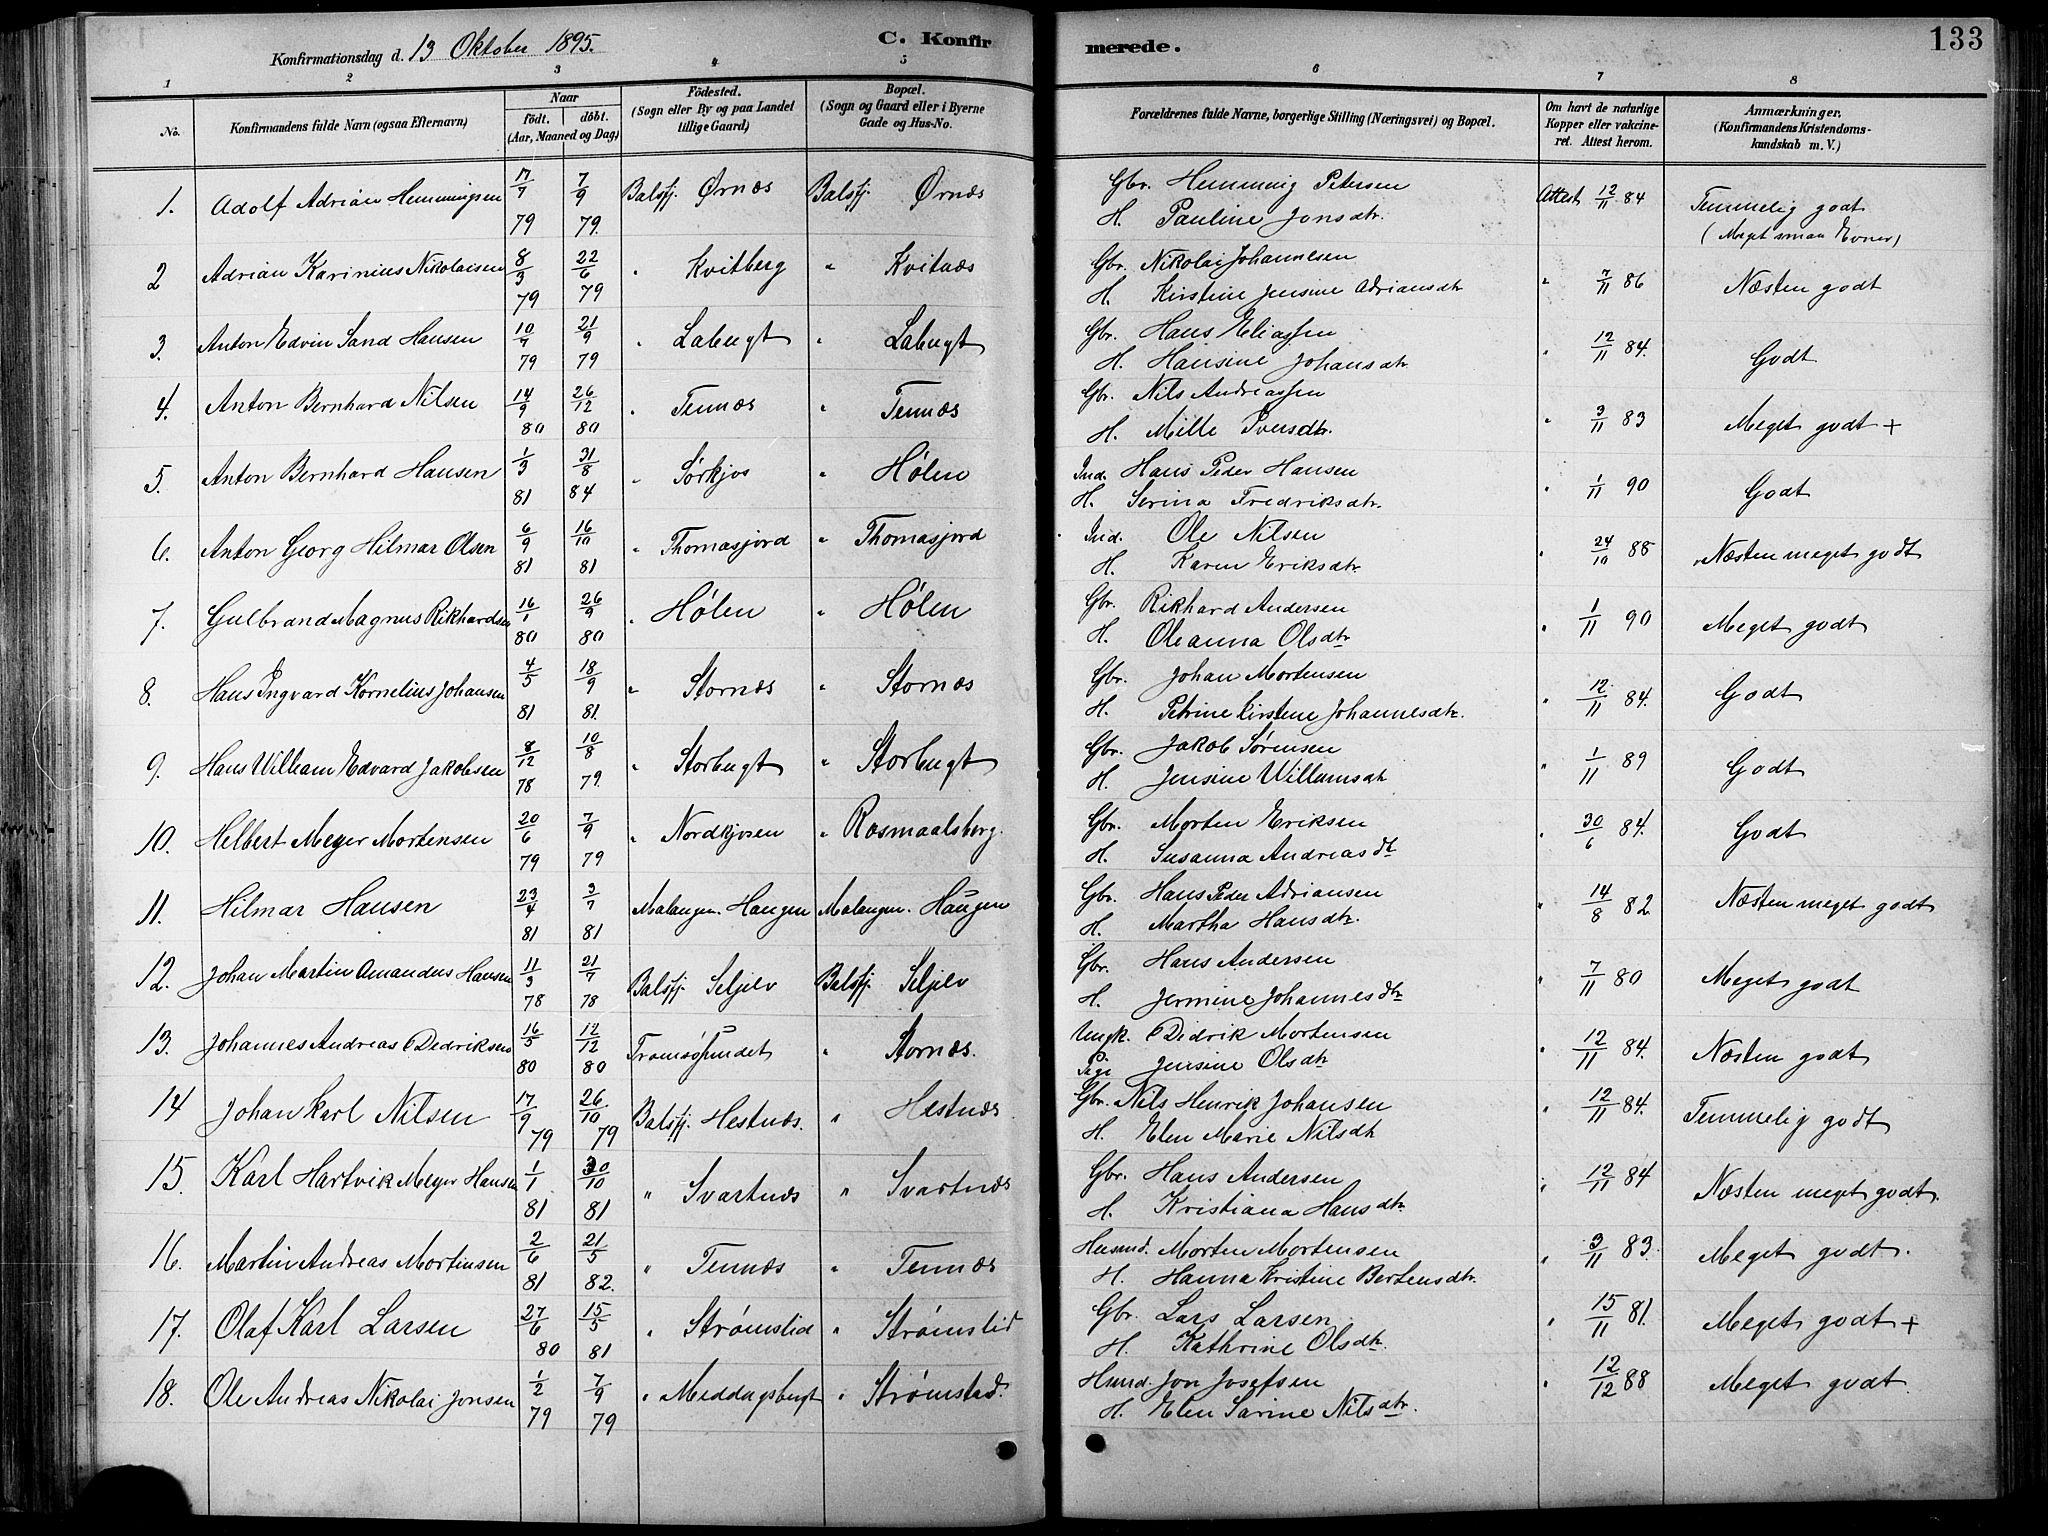 133
Konfirmationsdag d. 13 Oktober 1895. C. Konfirmerede.
1 2 3 4 5 6 7 8
No. Konfirmandens fulde Navn (ogsaa Efternavn) Naar födt. döbt. (Aar, Maaned og Dag) Födested. (Sogn eller By og paa Landet tillige Gaard) Bopæl. (Sogn og Gaard eller i Byerne Gade og Hus-No. Forældrenes fulde Navne, borgerlige Stilling (Næringsvei) og Bopæl. Om havt de naturlige Kopper eller vakcineret. Attest herom. Anmærkninger. (Konfirmandens Kristendomskundskab m. V.)
1. Adolf Adrian Hemmingsen 17/7 79 7/9 79. Balsfj. Ørnæs Balsfj. Ørnæs Gbr. Hemming Petersen Attest 12/11 84 Temmelig godt
H. Pauline Jonsdtr. (Meget smaa Evner)
2 Adrian Karinius Nikolaisen 8/3 79 22/6 79 " Kvitberg " Kvitnæs Gbr. Nikolai Johannesen " 7/11 86 Næsten godt
H. Kirstine Jensine Adriansdtr
3. Anton Edvin Sand Hansen 10/7 79 21/9 79 " Labugt " Labugt Gbr. Hans Eliassen " 12/11 84. Godt
H. Hansine Johansdtr
4. Anton Bernhard Nilsen 14/9 80 26/12 80 " Tennæs " Tennæs Gbr. Nils Andreassen " 3/11 83 Meget godt +
H. Mille Iversdtr.
5. Anton Bernhard Hansen 1/3 81 31/8 84 " Sørkjos " Hølen Ind. Hans Peder Hansen " 1/11 90 Godt
H. Serina Fredriksdtr.
6. Anton Georg Hilmar Olsen 6/9 81 16/10 81 " Thomasjord " Thomasjord Ind. Ole Nilsen " 24/10 88 Næsten meget godt
H. Karen Eriksdtr.
7. Gulbrand Magnus Rikhardsen 16/1 80 26/9 80 " Hølen " Hølen Gbr. Rikhard Andersen " 1/11 90 Meget godt
H. Oleanna Olsdtr
8. Hans Ingvard Kornelius Johansen 4/5 81 18/9 81. " Stornæs " Stornæs Gbr. Johan Mortensen " 12/11 84. Godt
H. Petrine Kirstene Johannesdtr.
9. Hans William Edvard Jakobsen 8/12 78 10/8 79. " Storbugt " Storbugt Gbr. Jakob Sørensen " 1/11 89 Godt
H. Jensine Willumsdtr
10. Helbert Meyer Mortensen 20/6 79 7/9 79 " Nordkjosen " Rosmaalsberg. Gbr. Morten Eriksen " 30/6 84. Godt
H. Susanna Andreasdtr
11. Hilmar Hansen 23/4 81 3/7 81 Malangen. Haugen Malangen. Haugen Gbr. Hans Peder Adriansen " 14/8 82 Næsten meget godt
H. Martha Hansdtr.
12. Johan Martin Amandus Hansen 11/3 78 21/7 78 Balsfj. Seljelv Balsfj. Seljelv Gbr. Hans Andersen " 7/11 80 Meget godt
H. Jermine Johannesdtr
13. Johannes Andreas Dedriksen 16/5 80 12/12 80 Tromsøsundet " Stornæs. Ungk. Didrik Mortensen " 12/11 84. Næsten godt
Pige Jensine Olsdtr
14 Johan Karl Nilsen 17/9 79 26/10 79 Balsfj. Hestnæs. " Hestnæs Gbr. Nils Henrik Johansen " 12/11 84. Temmelig godt
H. Elen Marie Nilsdtr
15. Karl Hartvik Meyer Hansen 1/1 81 30/10 81 " Svartnæs " Svartnæs Gbr. Hans Andersen " 12/11 84 Næsten meget godt.
H. Kristiana Hansdtr.
16. Martin Andreas Mortinsen 2/6 81 21/5 82. " Tennæs " Tennæs Husmd. Morten Mortensen " 3/11 83. Meget godt.
H. Hanna Kristine Bertensdtr.
17. Olaf Karl Larsen 27/6 80 15/5 81 " Strømslid " Strømslid Gbr. Lars Larsen " 15/11 81. Meget godt +
H. Kathrine Olsdtr.
18. Ole Andreas Nikolai Jonsen 1/2 79 7/9 79 " Meddagsbugt " Strømstad. Husmd. Jon Josefsen " 12/12 88 Meget godt
H. Elen Sarine Nilsdtr.